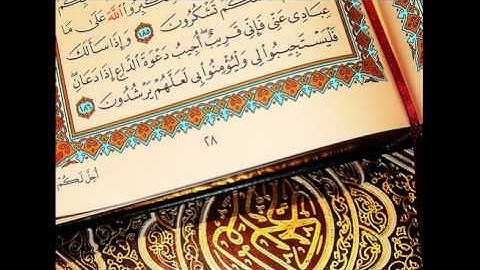 ـكم
ـبروا الله على ما
ـكم تشكرون ١٨٥ وإذا سألك
عبادي عني فإني قريب أجيب دعوة الداع إذا دعان
فليستجيبوا لي وليؤمنوا بي لعلهم يرشدون ١٨٦
٢٨
أحل لكم